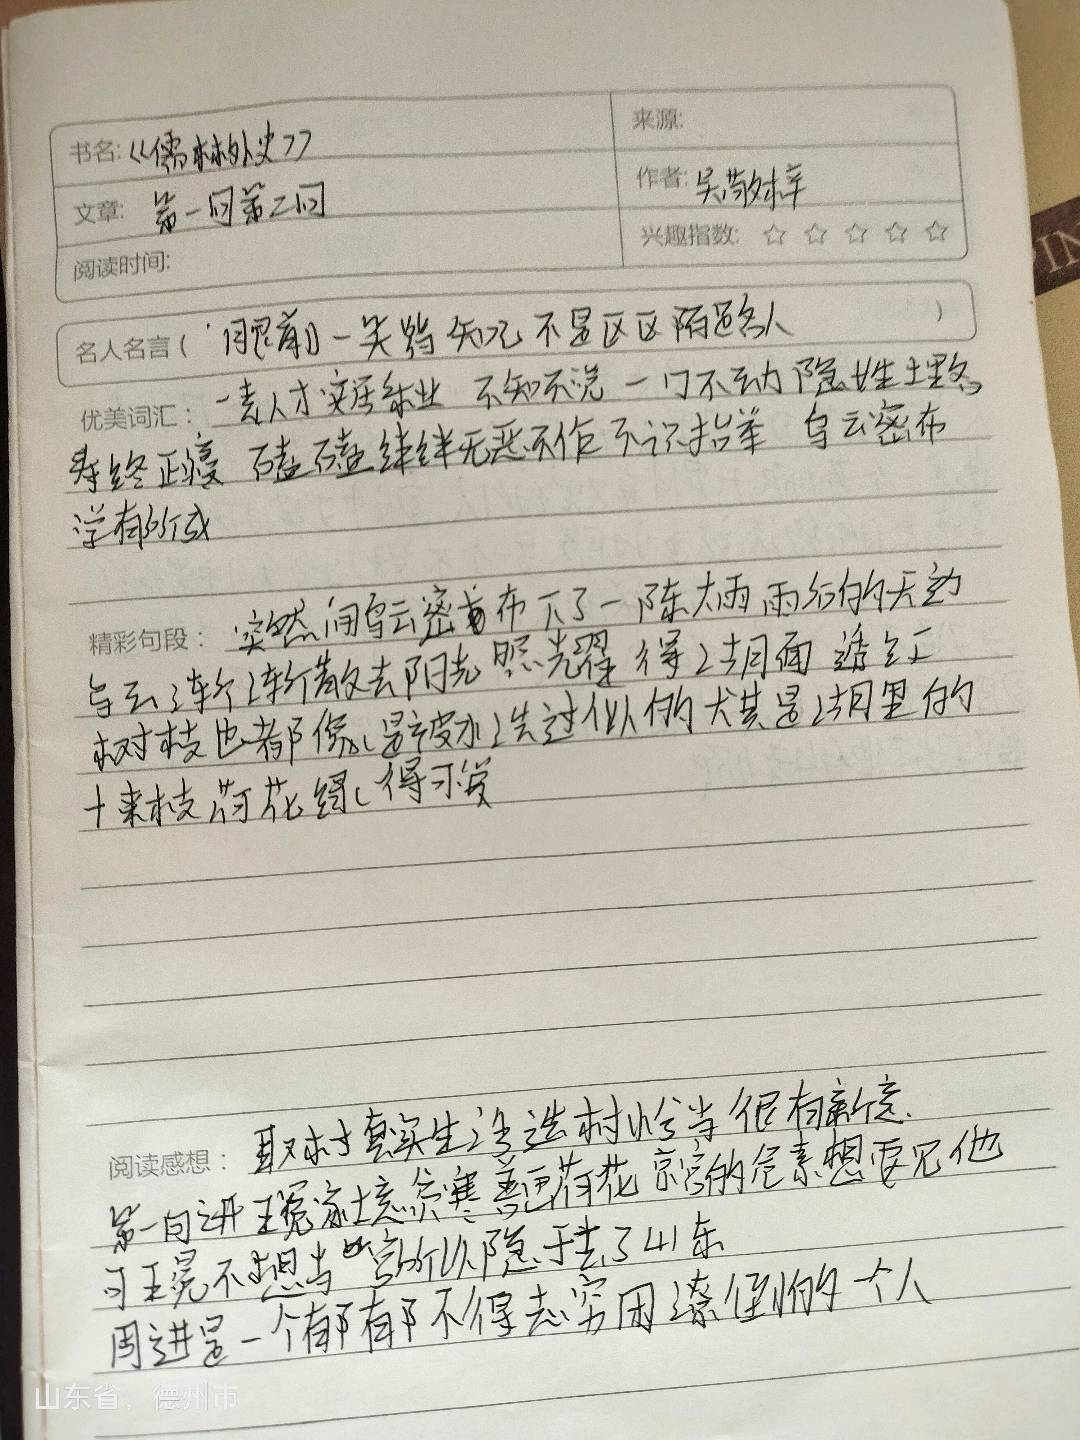 书名:《儒林外史》
来源:
作者: 吴敬梓
文章: 第一回第二回
兴趣指数: ☆ ☆ ☆ ☆ ☆
阅读时间:
名人名言( 眼前一笑皆知己 不是区区陌路人 )
优美词汇: 一表人才 安居乐业 不知不觉 一门不动 隐姓埋名
寿终正寝 磕磕绊绊 无恶不作 不识抬举 乌云密布
学有所成
精彩句段: 突然间乌云密布下了一陈大雨 雨后的天边
乌云渐渐散去 阳光照耀得湖面通红
树枝也都像是被水洗过似的 尤其是湖里的
十来枝荷花绿得可爱
阅读感想: 取材真实生活 选材恰当 很有新意.
第一回讲王冕家境贫寒 善画荷花 京官的危素想要见他
可王冕不想当官所以隐于去了山东
周进是一个郁郁不得志穷困潦倒的一个人
山东省，德州市
INO